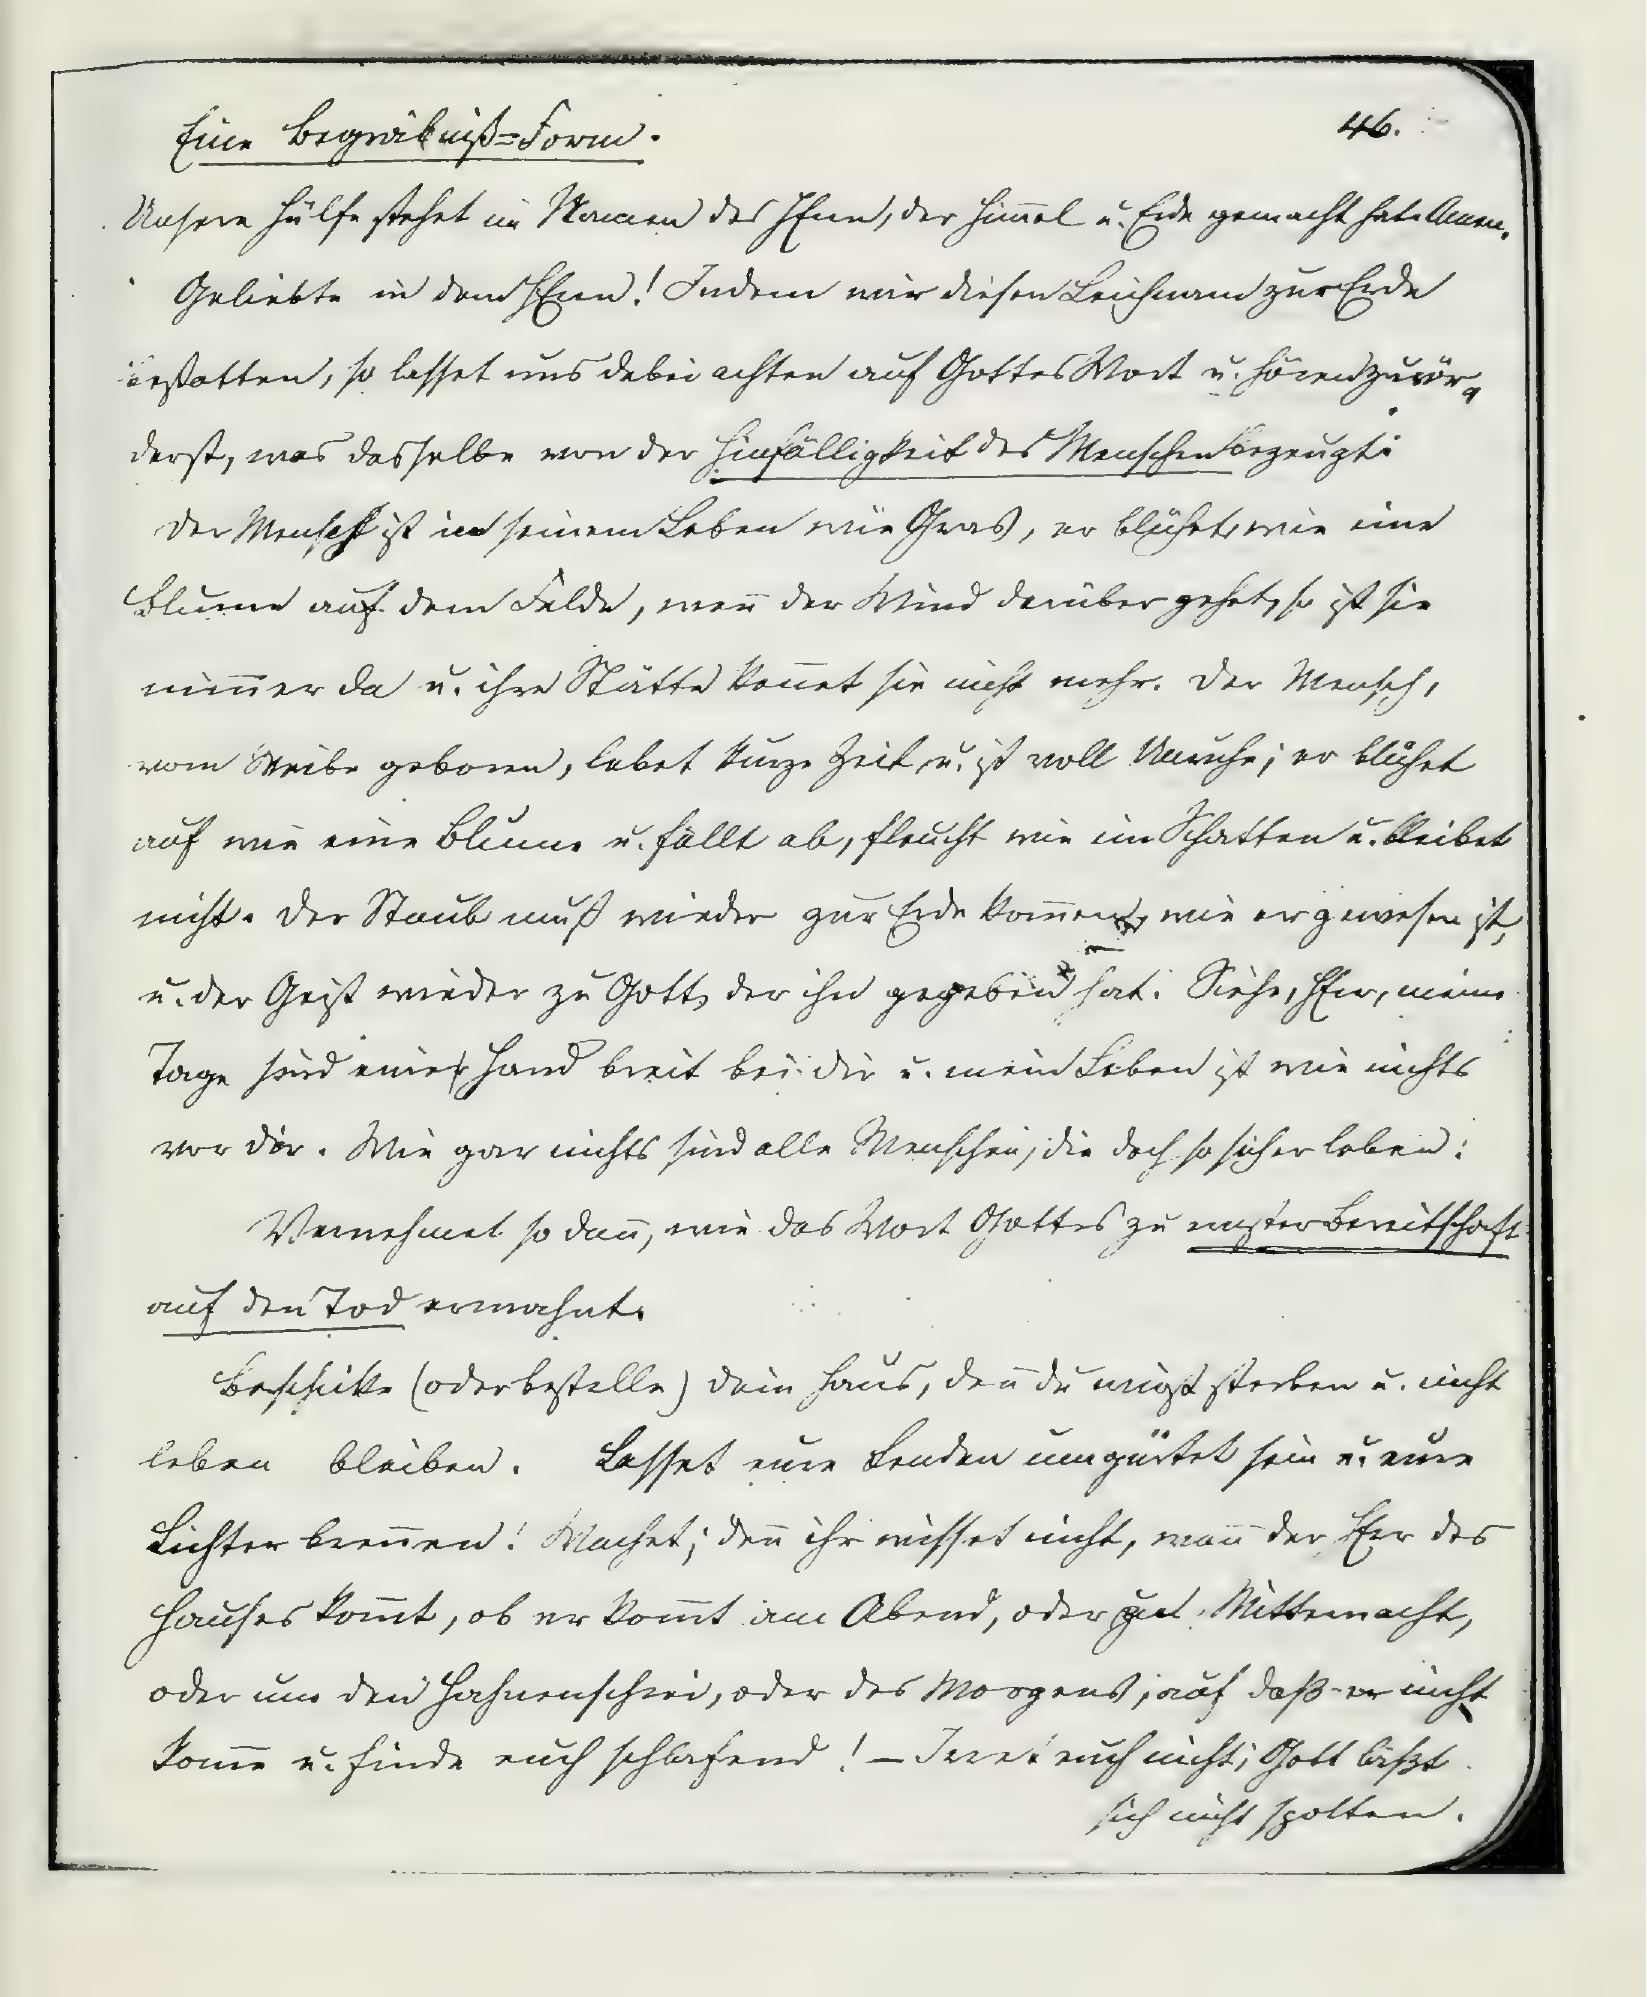 Eine Begräbniß=Form. 46.
Unsere Hülfe stehet im Namen des HErrn, der Himmel u. Erde gemacht hat. Amen.
Geliebte in dem HErrn! Indem wir diesen Leichnam zur Erde
bestatten, so lasset uns dabei achten auf Gottes Wort u. hören zuvör=
derst, was dasselbe von der Hinfälligkeit des Menschen bezeugt:
Der Mensch ist in seinem Leben wie Gras, er blühet, wie eine
Blume auf dem Felde, wen̄ der Wind darüber gehet, so ist sie
nim̄er da u. ihre Stätte ken̄et sie nicht mehr. Der Mensch,
vom Weibe geboren, lebet kurze Zeit, u. ist voll Unruhe; er blühet
auf wie eine Blume u. fällt ab, fleucht wie ein Schatten u. bleibet
nicht. Der Staub muß wieder zur Erde kom̄en, wie er gewesen ist,
u. der Geist wieder zu Gott, der ihn gegeben hat. Siehe, HErr, meine
Tage sind einer Hand breit bei dir u. mein Leben ist wie nichts
vor dir. Wie gar nichts sind alle Menschen, die doch so sicher leben!
Vernehmet so dan̄, wie das Wort Gottes zu ernster Bereitschaft
auf den Tod ermahnt.
Beschicke (oder bestelle) dein Haus, den̄ du mußt sterben u. nicht
leben bleiben. Lasset eure Lenden umgürtet sein u. eure
Lichter bren̄en! Wachet; den̄ ihr wisset nicht, wan̄ der Herr des
Hauses kom̄t, ob er kom̄t am Abend, oder zu Mitternacht,
oder um den Hahnenschrei, oder des Morgens; auf daß er nicht
kom̄e u. finde euch schlafend! – Irret euch nicht; Gott läßt
sich nicht spotten.